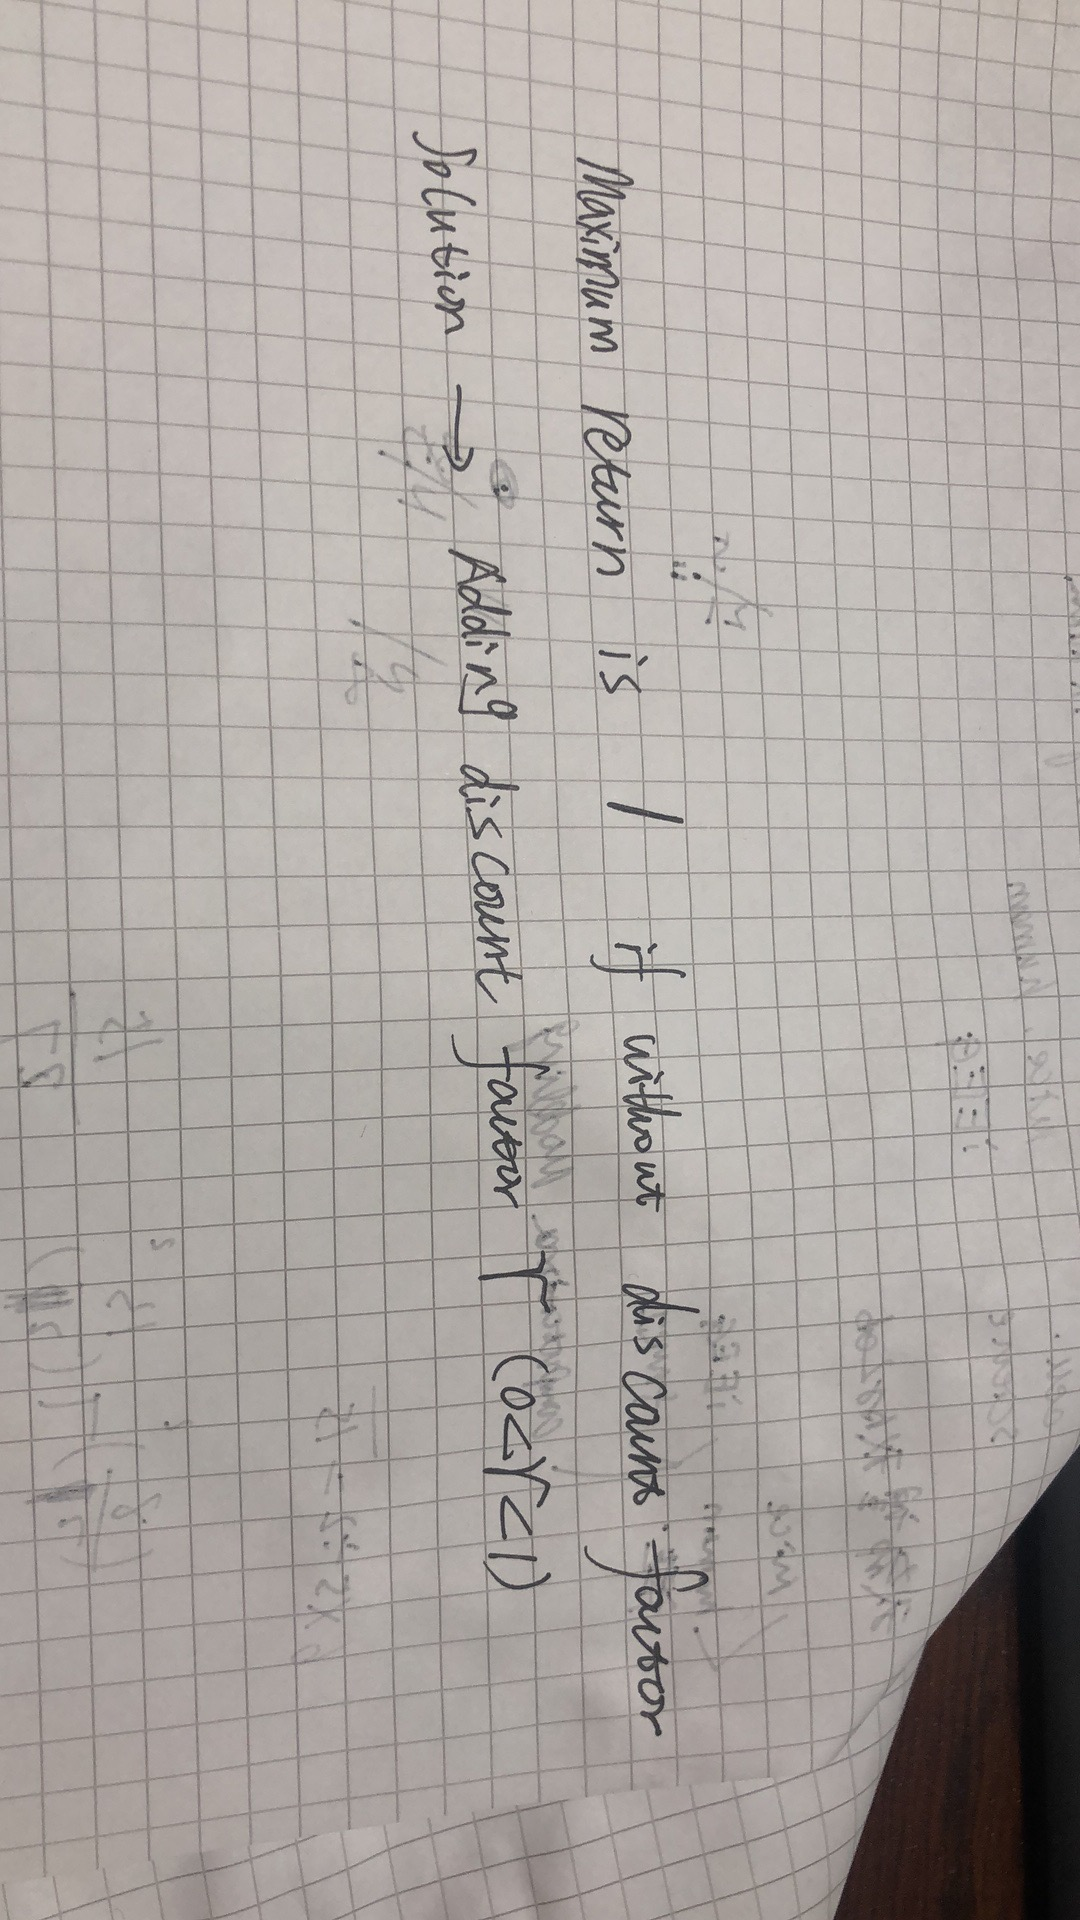 Maximum return is 1 if without discount factor
Solution → Adding discount factor γ (0<γ<1)